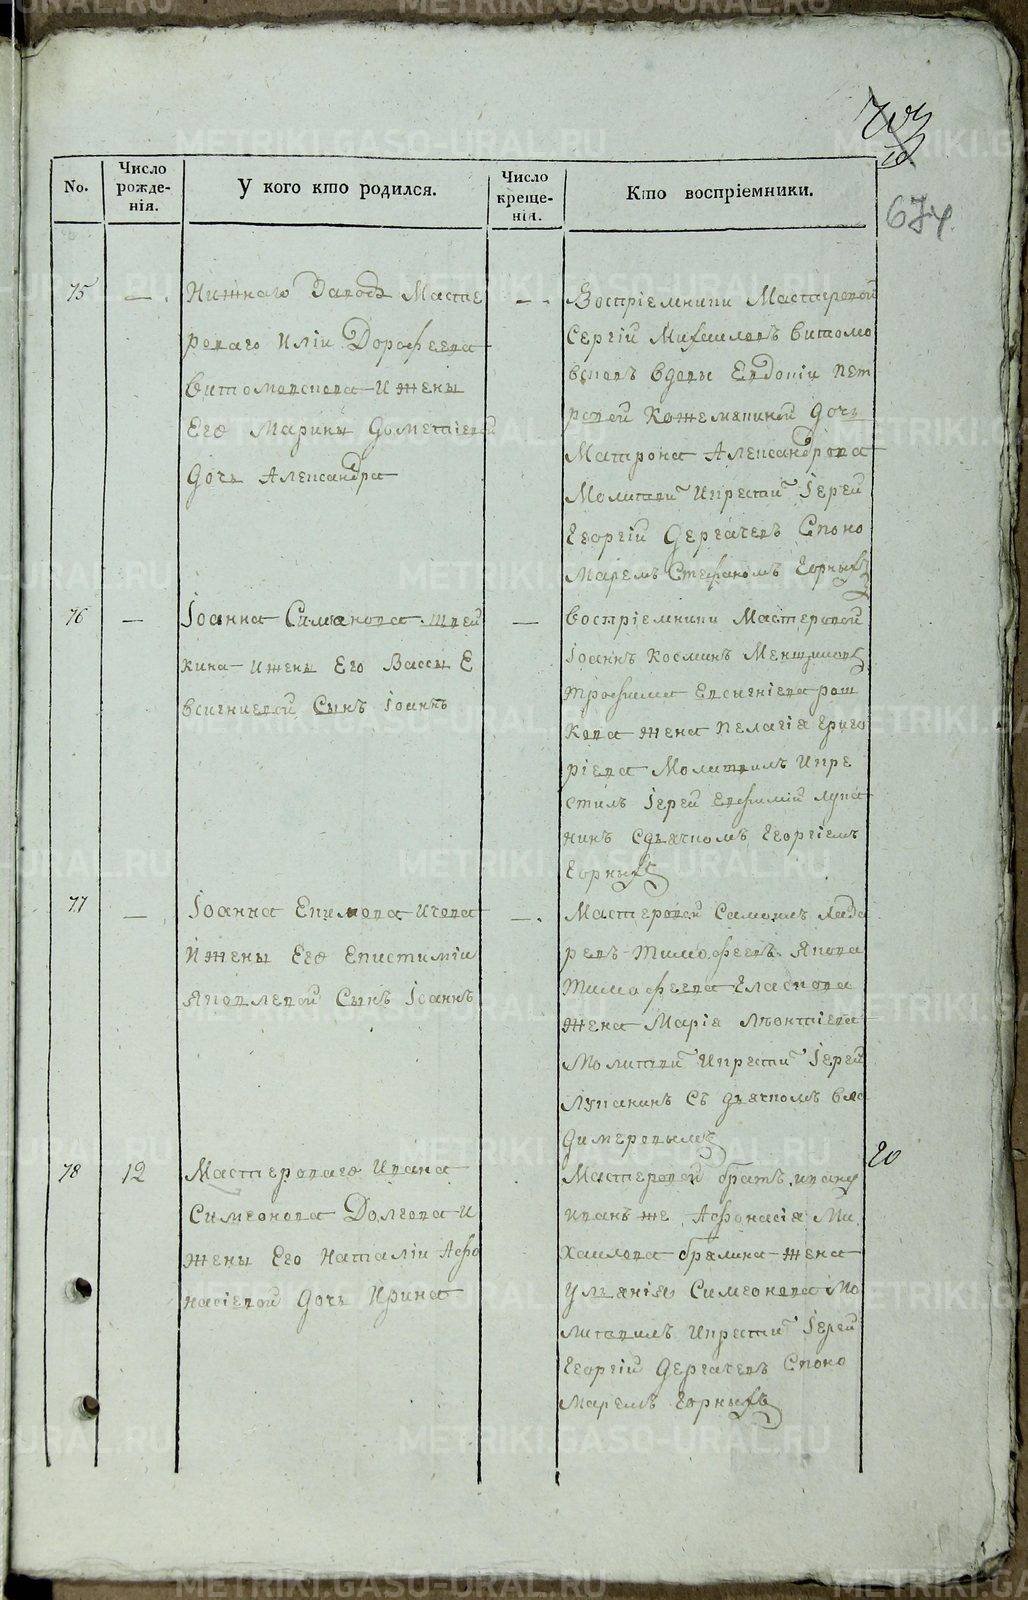 674.
No.
Число рожде-нія.
У кого кто родился.
Число креще-нія.
Кто воспріемники.
75
—
Нижнаго Завода Масте
роваго Иліи Дорофеева
Витомсквова И жены
Его Марины Дометіевой
Дочь Александра
—
Воспріемники Мастеровой
Сергій Михаиловъ Витомо
вдовы Евдокіи Пет
ровой Кожемякиной дочь
Матрона Александрова
Молитви Икрести Іерей
Георгій Дергачевъ Споно
Маремъ Стефаномъ Горныхъ
76
—
Іоанна Симанова Швей
кина И жены Его Вассы Е
всигниевой Сынъ Іоаннъ
—
Воспріемники Мастеровой
Іоаннъ Косминъ Меншиковъ
Трофима Евсигніева рош
кова жена Пелагія Григо
ріева Молитвилъ Икре
стилъ Іерей Евфимій Лука
нинъ Сдьячкомъ Георгіемъ
Горныхъ
77
—
Іоанна Екимова Ичева
Ижены Его Епистиміи
Яковлевой Сынъ Іоаннъ
—
Мастеровой Самоилъ
ревъ Тимофеевъ Якова
Тимофеева Гласкова
жена Марія Лѣонтіева
Молитви Икрести Іерей
Луканинъ Съ дьячкомъ Вла
димеровымъ
78
12
Мастероваго Ивана
Симеонова Долгова И
жены Его Наталіи Афо
насіевой Дочь Ирина
Мастеровой братъ ивану
иванъ же Афонасія Ми
хаилова бралина жена
Ульянія Симеонова Мо
литвилъ Икрести Іерей
Георгій Дергачевъ Споно
маремъ Горныхъ
20
METRIKI.GASO-URAL.RU